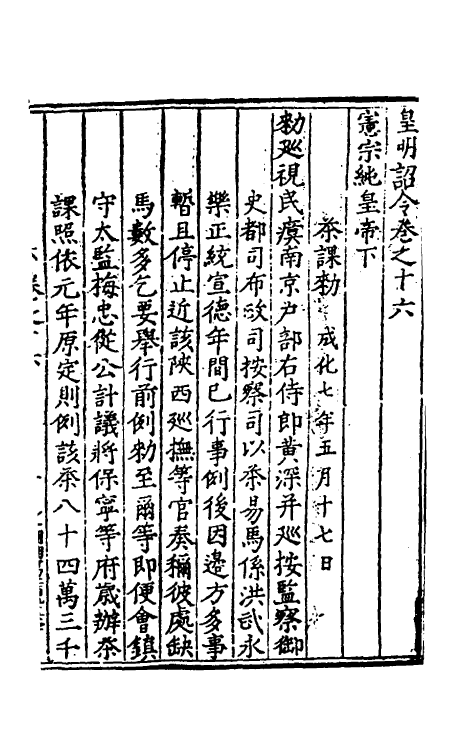 皇明詔令卷之十六
憲宗純皇帝下
茶課勑 成化七年五月十七日
勑廵視民瘼南京户部右侍郎黄深并廵按監察御
史都司布政司按察司以茶易馬係洪武永
樂正統宣德年間已行事例後因邊方多事
暫且停止近該陝西廵撫等官奏稱彼處缺
馬數多乞要舉行前例勑至爾等即便會鎮
守太監梅忠從公計議將保寧等府歳辦茶
課照依元年原定則例該茶八十四萬三千